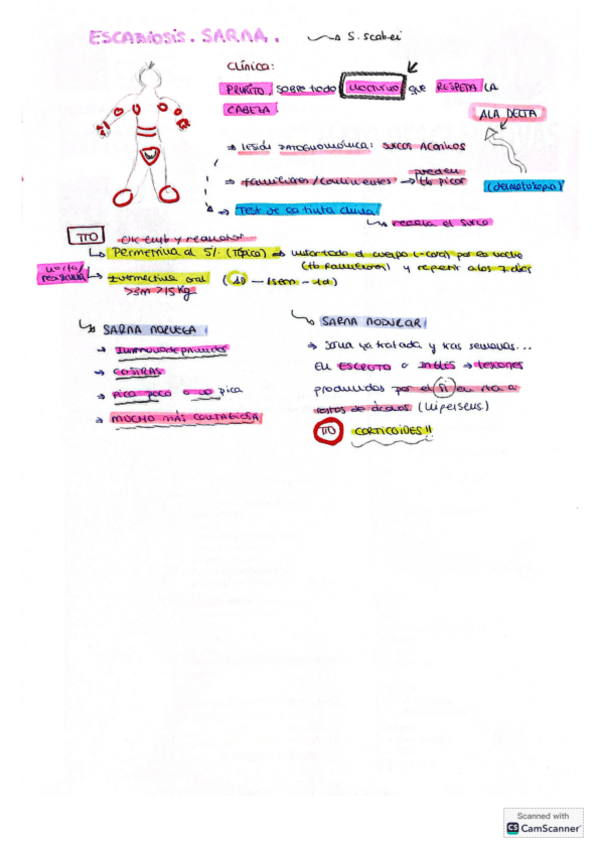 ESCABIOSIS. SARNA. → S. scabei
Clínica:
PRURITO, sobre todo NOCTURNO que RESPETA LA
CABEZA
ALA DELTA
→ LESIÓN PATOGNOMÓNICA: SURCOS ACARINOS
→ FAMILIARES/CONVIVIENTES → pueden tb picar
(dermatoscopia)
→ TEST DE LA TINTA CHINA
↳ revela el surco
TTO OK emb y
↳ PERMETRINA AL 5% (TÓPICA) ⇒ untar todo el cuerpo (-cara) por la noche
(tb familiares) y repetir a los 7 días
↳ Ivermectina oral (1d — 1sem — 1d)
>15Kg
↳ SARNA NORUEGA:
→ Inmunodeprimidos
→ COSTRAS
→ PICA POCO O NO pica
→ MUCHO MÁS CONTAGIOSA
↳ SARNA NODULAR:
→ Sarna ya tratada y tras semanas...
EN ESCROTO O INGLES → LESIONES
PRODUCIDAS por el SI en rta a
restos de ácaros (hipersens)
TTO CORTICOIDES!!
Scanned with
CS CamScanner